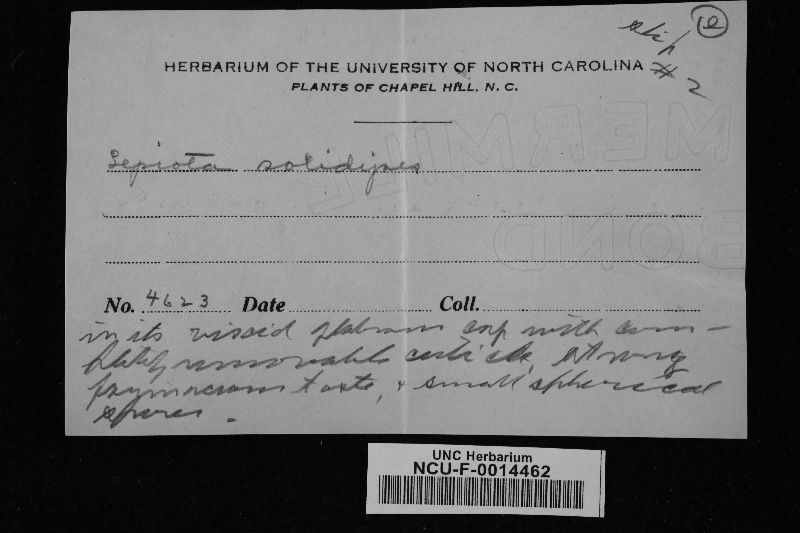 slip
12
# 2
HERBARIUM OF THE UNIVERSITY OF NORTH CAROLINA
PLANTS OF CHAPEL HILL, N. C.
Lepiota solidipes
No. 4623 Date Coll.
in its viscid glabrous cap with com-
pletely removable cuticle, strong
farinaceous taste, & small spherical
spores.
HAMMERMILL
BOND
UNC Herbarium
NCU-F-0014462